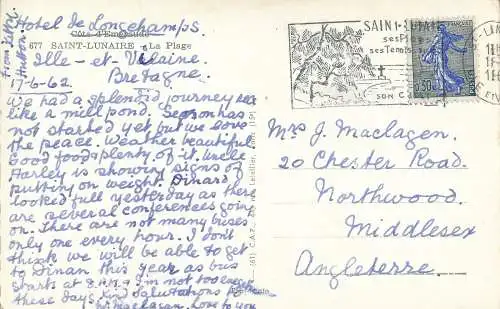 Hotel de Longchamps
Côte d'Emeraude
677 SAINT-LUNAIRE - La Plage
Ille-et-Vilaine
Bretagne.
17-6-62
We had a splendid journey sea
like a mill pond. Season has
not started yet but we love
the peace. Weather beautiful
Good food & plenty of it. Uncle
Harley is showing signs of
putting on weight. Dinard
looked full yesterday as there
are several conferences going
on. There are not many buses
only one every hour. I don't
think we will be able to get
to Dinan this year as bus
starts at 8 I'm not too
these days. Kind Salutations to
Maclagen. Love to you
From
SAINT-LUNAIRE
ses
ses Tennis
SON
FRANÇAISE
0,50
Mrs J. Maclagen.
20 Chester Road.
Northwood.
Middlesex
Angleterre.